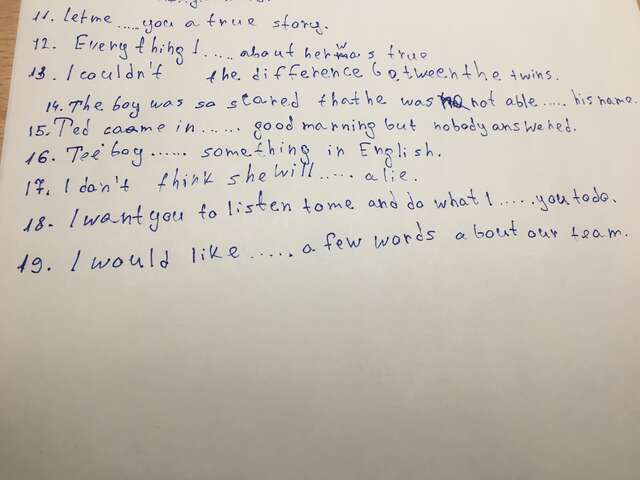 11. let me ..... you a true story.
12. Everything I ..... about her was true
13. I couldn't the difference between the twins.
14. The boy was so scared that he was not able ..... his name.
15. Ted came in ...... good marning but nobody answered.
16. Tee boy ...... something in English.
17. I don't think she will ..... a lie.
18. I want you to listen to me and do what I ..... you to do.
19. I would like ..... a few words about our team.